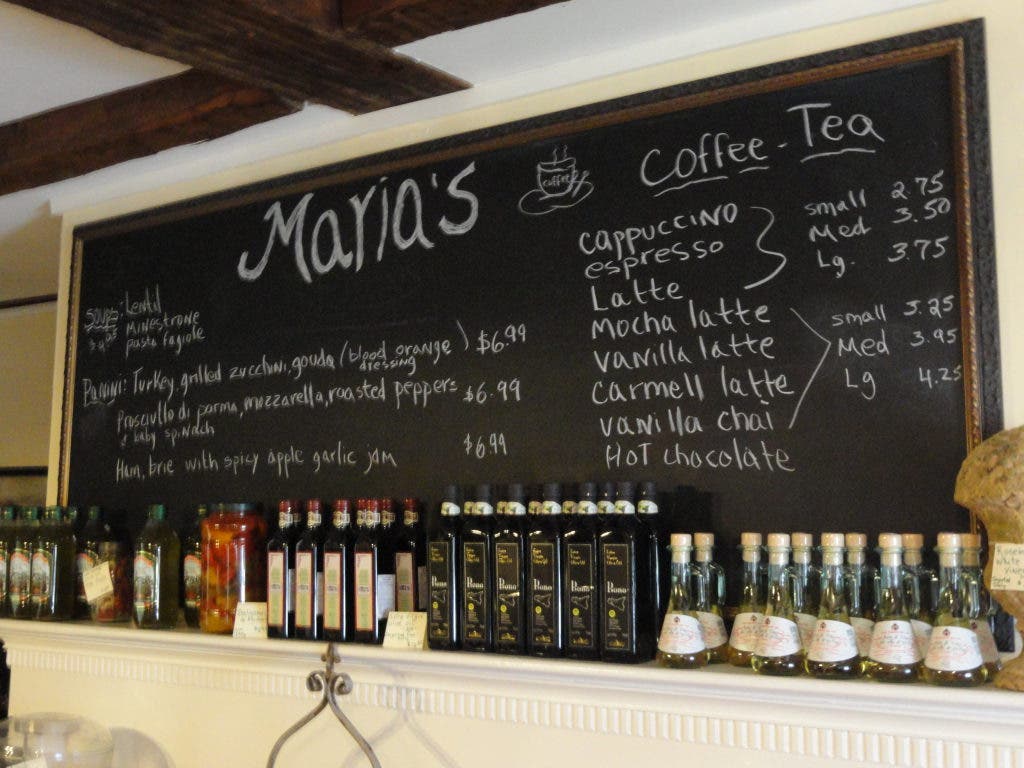 Maria's
coffee
Coffee - Tea
soups: Lentil
$4.95 Minestrone
pasta fagiole
Panini: Turkey, grilled zucchini, gouda (blood orange dressing) $6.99
Prosciutto di parma, mozzarella, roasted peppers $6.99
& baby spinach
Ham, brie with spicy apple garlic jam $6.99
cappuccino
espresso
Latte
small 2.75
Med 3.50
Lg. 3.75
Mocha latte
vanilla latte
carmell latte
vanilla chai
HOT chocolate
small 3.25
Med 3.95
Lg 4.25
Bono
Bono
Bono
Bono
Bono
Bono
White